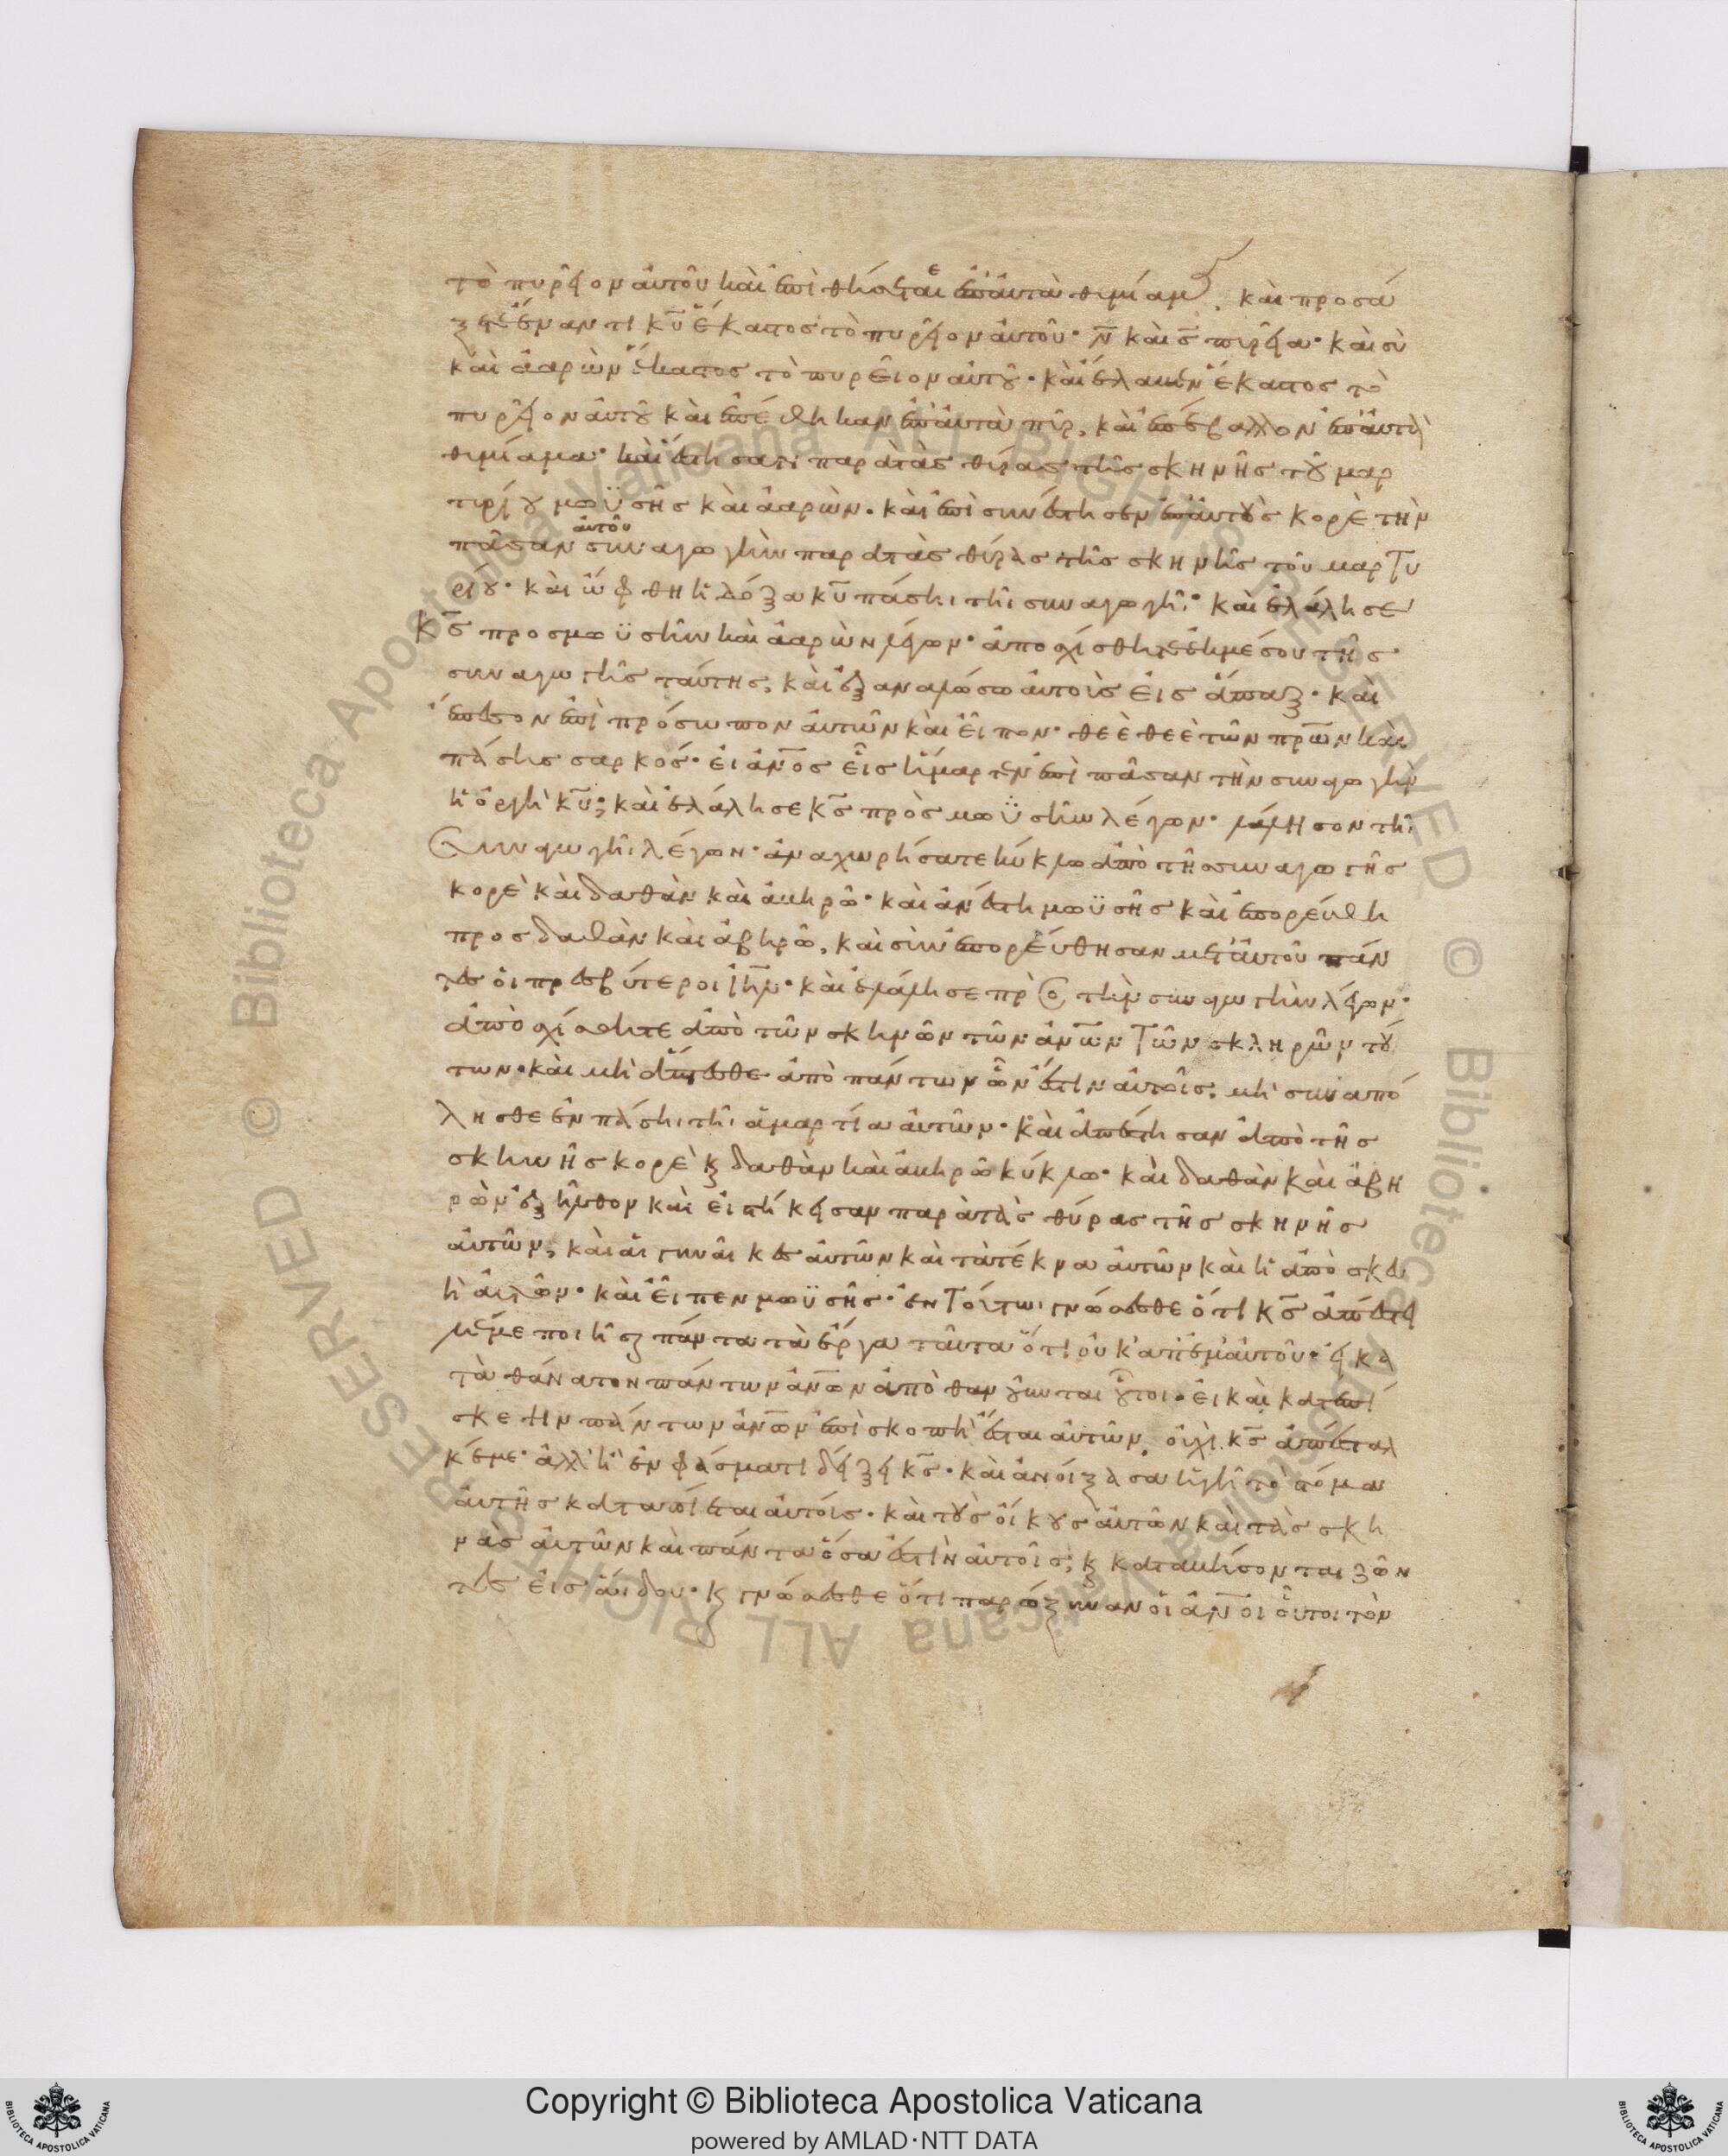 τὸ πυρεῖον αὐτοῦ καὶ ἐπιθήσεται ἐπ' αὐτὰ θυμίαμα. καὶ προσά
ξει ἔναντι κ̅υ̅ ἕκαστος τὸ πυρεῖον αὐτοῦ· ν̅ καὶ σ̅ πυρεῖα· καὶ σὺ
καὶ ἀαρὼν ἕκαστος τὸ πυρεῖον αὐτοῦ· καὶ ἔλαβεν ἕκαστος τὸ
πυρεῖον αὐτοῦ καὶ ἐπέθηκαν ἐπ' αὐτὰ πῦρ, καὶ ἐπέβαλλον ἐπ' αὐτὰ
θυμίαμα· καὶ ἔστησαν παρὰ τὰς θύρας τῆς σκηνῆς τοῦ μαρ
τυρίου μωϋσῆς καὶ ἀαρών. καὶ ἐπισυνέστησεν ἐπ' αὐτοὺς κορὲ τὴν
πᾶσαν αὐτοῦ συναγωγὴν παρὰ τὰς θύρας τῆς σκηνῆς τοῦ μαρτυ
ρίου· καὶ ὤφθη ἡ δόξα κ̅υ̅ πάσηι τῆι συναγωγῆι· καὶ ἐλάλησε
κ̅ς̅ προς μωϋσῆν καὶ ἀαρὼν λέγων· ἀποσχίσθητε ἐκ μέσου τῆς
συναγωγῆς ταύτης, καὶ ἐξαναλώσω αὐτοὺς εἰς ἅπαξ· καὶ
ἔπεσον ἐπὶ πρόσωπον αὐτῶν καὶ εἶπον· θεὲ θεὲ τῶν π̅ρ̅ω̅ν̅ καὶ
πάσης σαρκός· εἰ ἄν̅ο̅ς̅ εἷς ἥμαρτεν ἐπὶ πᾶσαν τὴν συναγωγὴν
ἡ ὀργὴ κ̅υ̅; καὶ ἐλάλησε κ̅ς̅ πρὸς μωϋσῆν λέγων· λάλησον τῆι
Συναγωγῆι λέγων· ἀναχωρήσατε κύκλω ἀπὸ τῆς συναγωγῆς
κορὲ καὶ δαθὰν καὶ ἀβηρώ· καὶ ἀνέστη μωϋσῆς καὶ ἐπορεύθη
προς δαθὰν καὶ ἀβηρώ, καὶ συνεπορεύθησαν μετ' αὐτοῦ πάν
τες οἱ πρεσβύτεροι ι̅η̅λ̅· καὶ ἐλάλησε πρὸς τὴν συναγωγὴν λέγων·
ἀποσχίσθητε ἀπὸ τῶν σκηνῶν τῶν ἀν̅ω̅ν̅ τῶν σκληρῶν τού
των· καὶ μὴ ἅπτεσθε ἀπὸ πάντων ὧν ἐστὶν αὐτοῖς. μὴ συναπό
λησθε ἐν πάσηι τῆι ἁμαρτία αὐτῶν· καὶ ἀπέστησαν ἀπὸ τῆς
σκηνῆς κορὲ ϗ δαθὰν καὶ ἀβηρὼ κύκλω· καὶ δαθὰν καὶ ἀβη
ρὼν ἐξῆλθον καὶ εἱστήκεισαν παρὰ τὰς θύρας τῆς σκηνῆς
αὐτῶν, καὶ αἱ γυναῖκες αὐτῶν καὶ τὰ τέκνα αὐτῶν καὶ ἡ ἀποσκευ
ὴ αὐτῶν· καὶ εἶπεν μωϋσῆς· ἐν τούτωι γνώσεσθε ὅτι κ̅ς̅ ἀπέστει
λέ με ποιῆσαι πάντα τὰ ἔργα ταῦτα ὅτι οὐκ ἀπ' ἐμαυτοῦ· εἰ κα
τὰ θάνατον πάντων ἀν̅ω̅ν̅ ἀποθανοῦνται οὗτοι. εἰ καὶ κατ' ἐπί
σκεψιν πάντων ἀν̅ω̅ν̅ ἐπισκοπὴ ἔσται αὐτῶν, οὐχὶ κ̅ς̅ ἀπέσταλ
κέ με· ἀλλ' ἢ ἐν φάσματι δείξει κ̅ς̅· καὶ ἀνοίξασα ἡ γῆ τὸ στόμα
αὐτῆς καταπίεται αὐτούς· καὶ τοὺς οἴκους αὐτῶν καὶ τὰς σκη
νὰς αὐτῶν καὶ πάντα ὅσα ἐστὶν αὐτοῖς, ϗ καταβήσονται ζῶν
τες εἰς ἅιδου· ϗ γνώσεσθε ὅτι παρώξυναν οἱ ἄν̅ο̅ι̅ οὗτοι τὸν
Copyright © Biblioteca Apostolica Vaticana
powered by AMLAD·NTT DATA